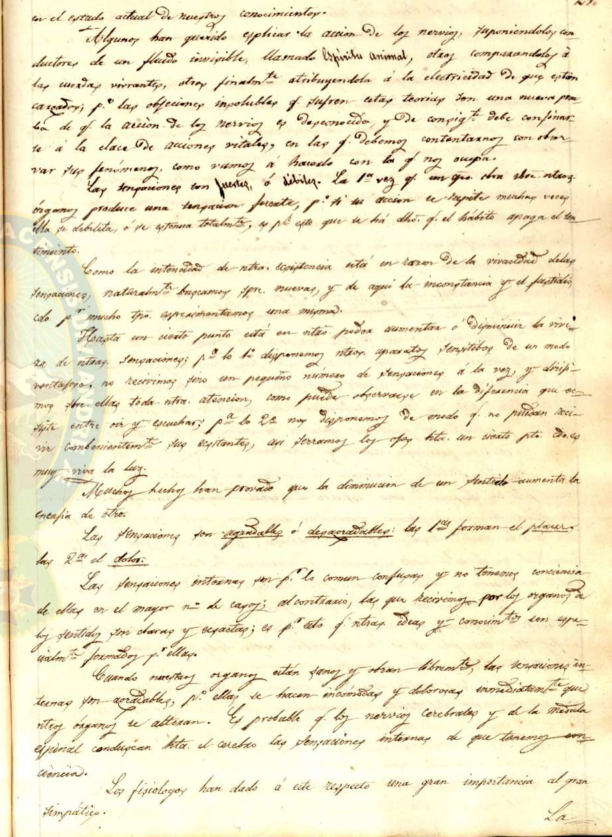 en el estado actual de nuestros conocimientos.
Algunos han querido esplicar la accion de los nervios, suponiendolos con
ductores de un fluido invisible, llamado Espiritu animal, otros comparandolos á
las cuerdas vivrantes, otros finalmte. atribuyendola á la electricidad de que estan
cargados; po. las objeciones insolubles q. sufren estas teorias son una nueva prue
ba de q. la accion de los nervios es desconocida, y de consigte. debe confinar
se á la clace de acciones vitales, en las q. debemos contentarnos con obser
var sus fenómenos, como vamos á hacerlo con la q. nos ocupa.
Las sensaciones son fuertes, ó débiles. La 1a. vez q. un cpo. obra sbre. ntros.
órganos produce una sensacion fuerte, po. si su accion se repite muchas veces
ella se debilita, ó se estenua totalmte., es pr. esto que se há dho. q. el hábito apaga el sen
timiento.
Como la intensidad de ntra. ecsistencia está en razon de la vivacidad de las
sensaciones, naturalmte. buscamos spre. nuevas, y de aqui la inconstancia y el fastidio
cdo. pr. mucho tpo. esperimentamos una misma.
Hasta un cierto punto está en ntro. poder aumentar ó disminuir la vive
za de ntras. sensaciones; pa. lo 1o. disponemos ntros. aparatos sensitivos de un modo
ventajoso, no recivimos sino un pequeño número de sensaciones á la vez, y
sbre. ellas toda ntra. atencion, como puede observarse en la diferencia que ec
siste entre oir y escuchar; pa. lo 2o. nos disponemos de modo q. no puedan
sus ecsitantes, asi serramos los ojos hta. un cierto pto. cdo. es
muy viva la luz.
Muchos hechos han provado que la diminucion de un sentido aumenta la
energia de otro.
Las sensaciones son agradables ó desagradables: las 1as. forman el placer
las 2as. el dolor.
Las sensaciones internas son pr. lo comun confusas y no tenemos conciencia
de ellas en el mayor no. de casos; al contrario, las que recivimos por los organos de
los sentidos son claras y ecsactas; es pr. esto q. ntras. ideas y conocimtos. son espe
cialmte. formados pr. ellas.
Cuando nuestros organos están sanos y obran libremte., las sensaciones in
ternas son agradables, po. ellas se hacen incómodas y dolorosas inmediatamte. que
ntros. órganos se alteran. Es probable q. los nervios cerebrales y de la médula
espinal conduscan hta. el cerebro las sensaciones internas de que tenemos con
ciencia.
Los fisiologos han dado á este respecto una gran importancia al gran
simpático.
La